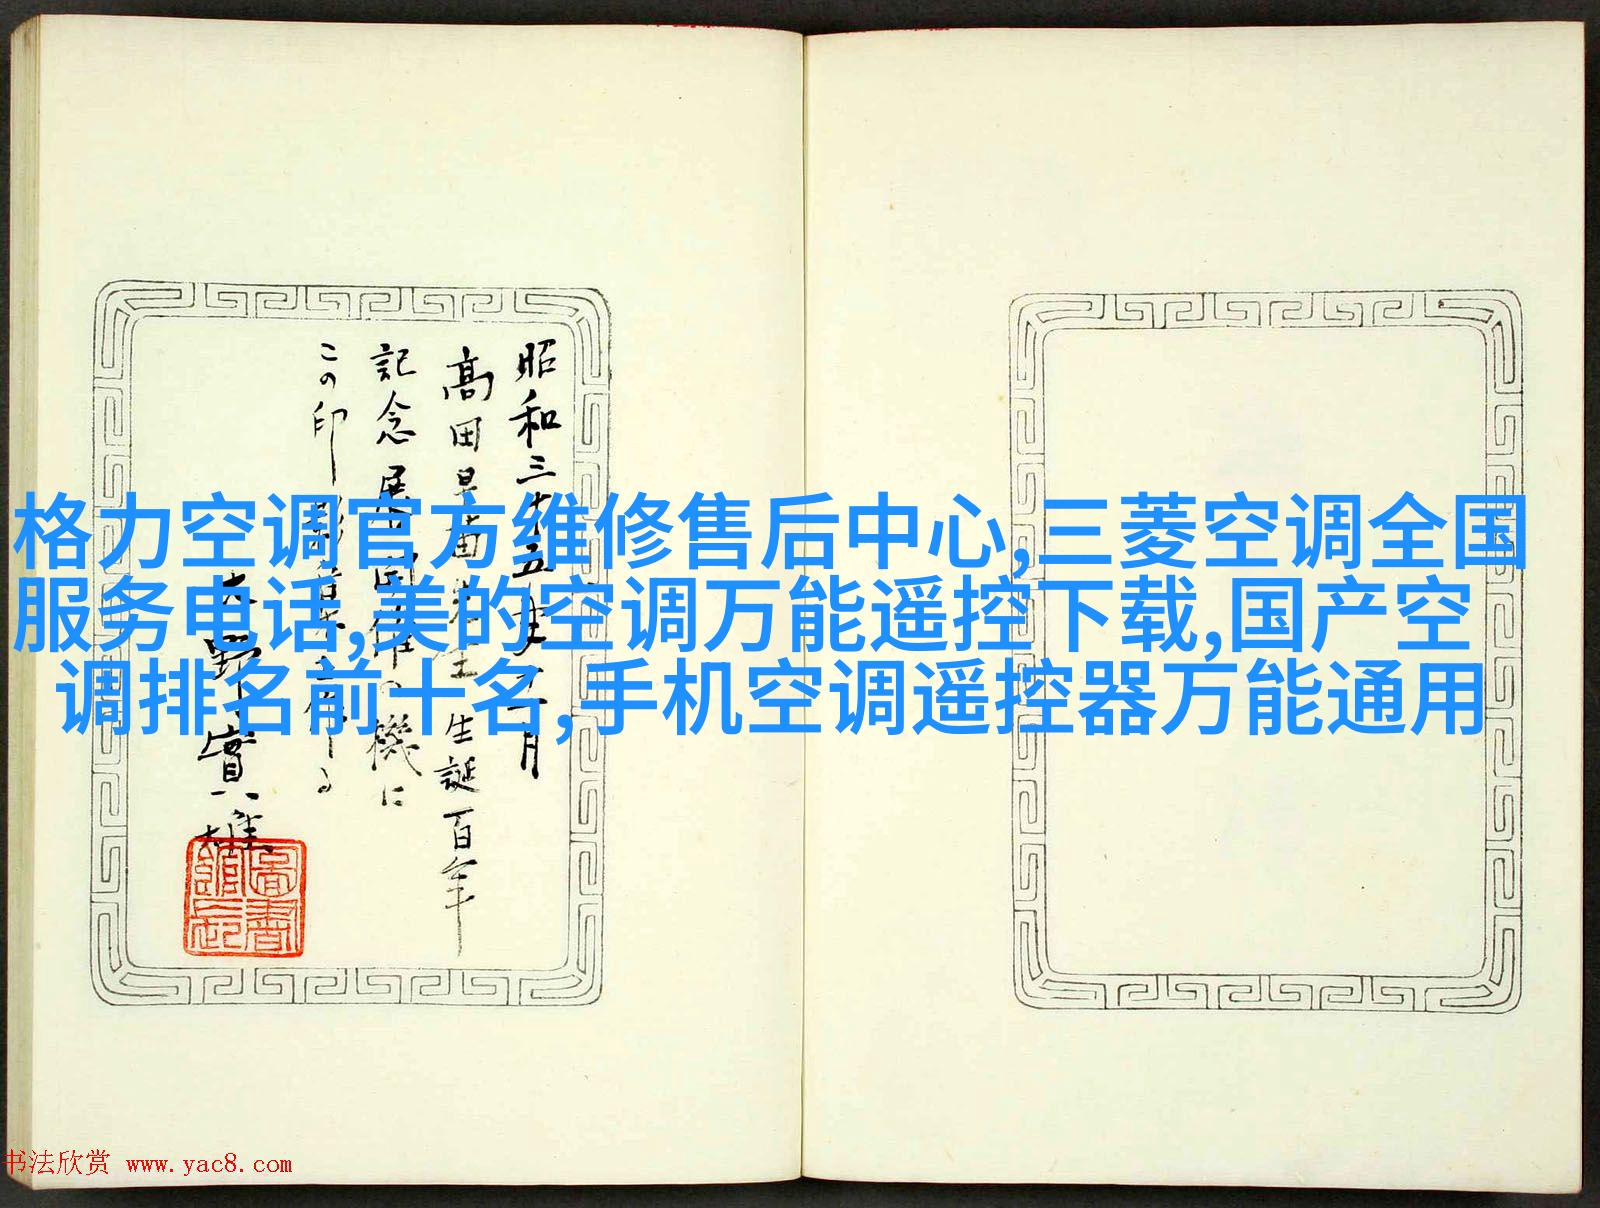 格力空调官方维修售后中心,三菱空调全国
服务电话,美的空调万能遥控下载,国产空
调排名前十名,手机空调遥控器万能通用
昭和三十五年
高田早苗先生生誕百年
記念展
機に
この印
書法欣赏 www.yac8.com